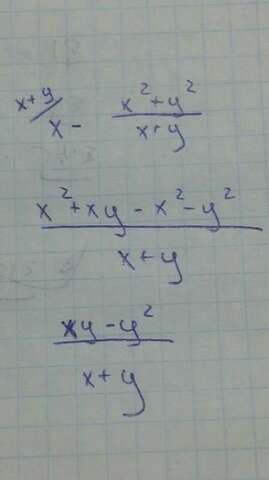 x+y/ x - (x² + y²)/(x+y)
(x² + xy - x² - y²)/(x+y)
(xy - y²)/(x+y)